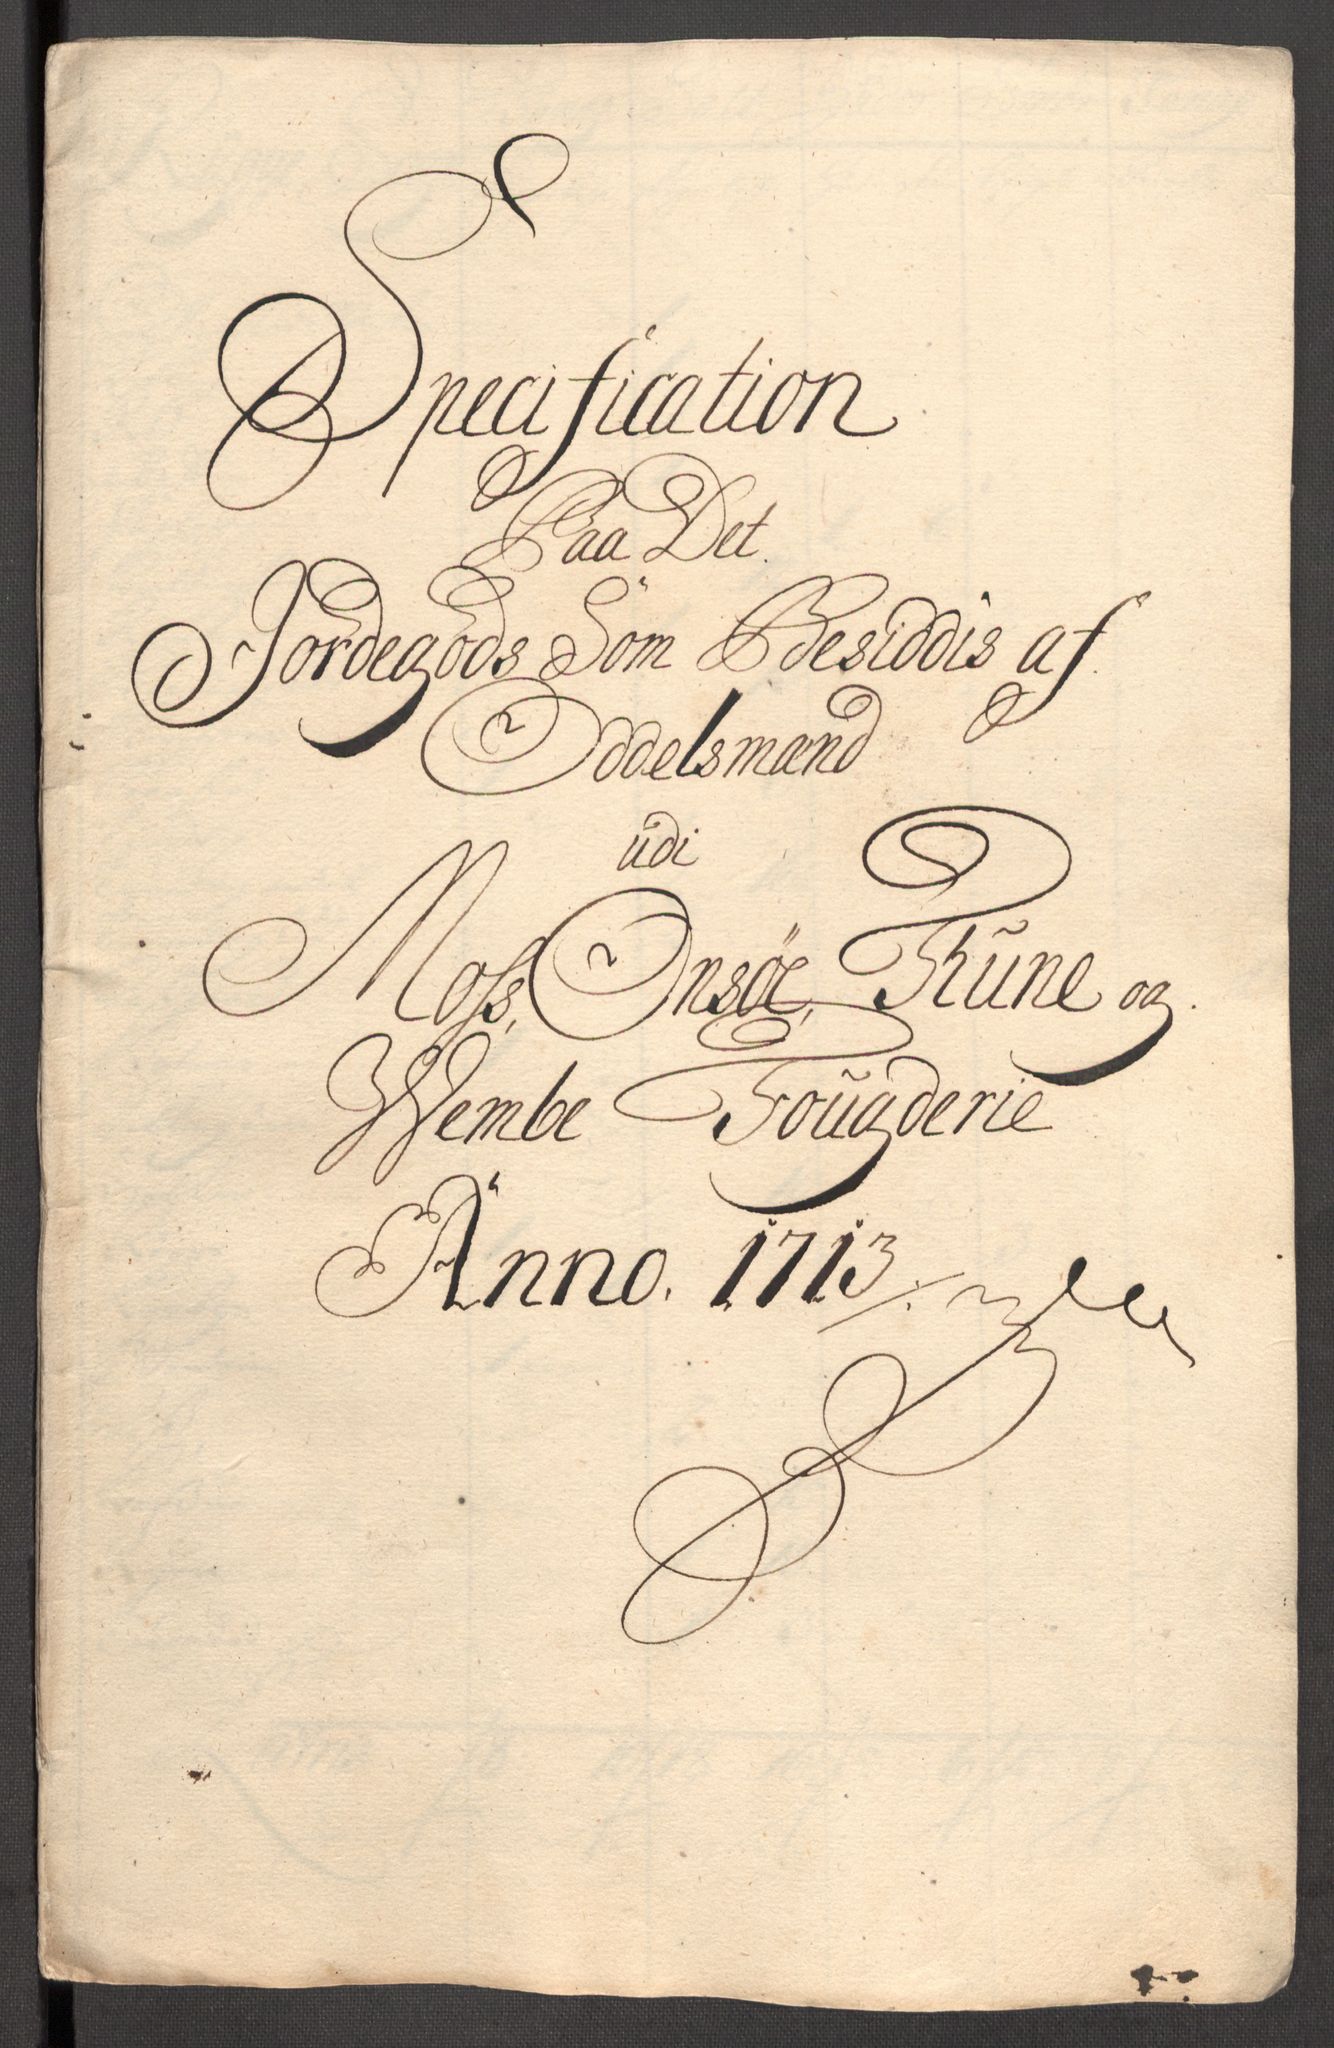 Specification
Paa Det
Jordegods Som Besiddis af
Oddelsmænd
udi
Moss, Onsöe, Thüne og
Wembe Foügderie
Anno. 1713